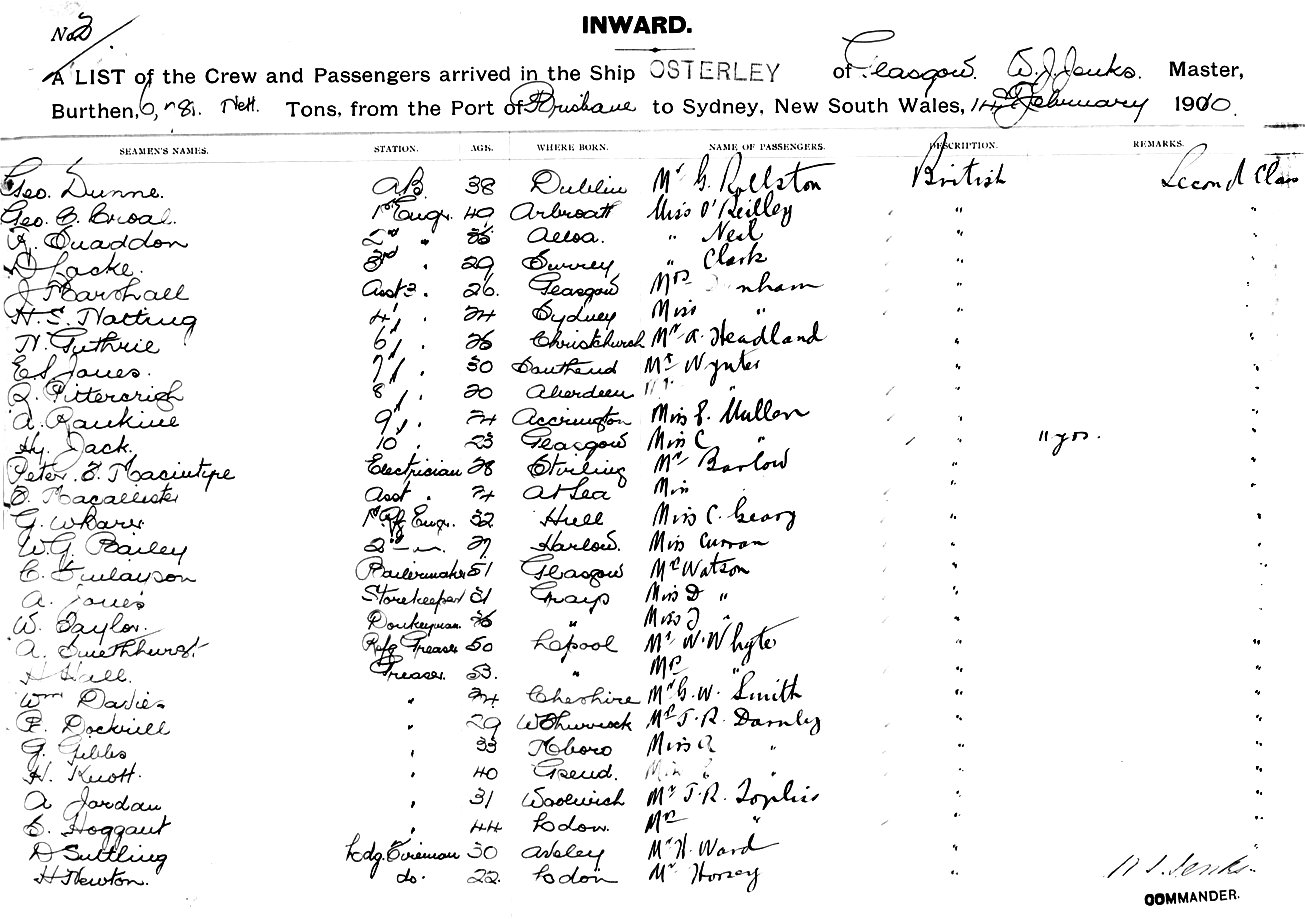 No 2
INWARD.
A LIST of the Crew and Passengers arrived in the Ship OSTERLEY of Glasgow. W. J. Jenks. Master,
Burthen, Nett. Tons, from the Port of Brisbane to Sydney, New South Wales, 14th February 1910.
SEAMEN'S NAMES. STATION. AGE. WHERE BORN. NAME OF PASSENGERS. DESCRIPTION. REMARKS.
Geo. Dunne. A.B. 38 Dublin Mr G. Rollston British Second Class
Geo. 1st Engr. 40 Arbroath Miss O'Reilley " "
2nd " Alloa. " Neil " "
3rd " 29 Surrey " Clark " "
J Marshall Asst 3. " 26. Glasgow Mrs " "
H. S. Natting 4th " 24 Sydney Miss " " "
N. Guthrie 6th " 26 Christchurch Mr A. Headland " "
E S Jones. 7th " 30 Southend Mr Wynter " "
8th " 20 Aberdeen " " "
A. Rankine 9th " 24 Accrington Miss E. Mullen " "
Hy. Jack. 10 " 23 Glasgow Miss C " " 11 yrs. "
Peter. Macintype Electrician 28 Stirling Mr Barlow " "
Macallister Asst " 24 At Sea Miss " "
G. 1st Rfg Engr. 32 Hull Miss C. Geary " "
W. G. Bailey 2nd " 27 Harlow. Miss Curran " "
C. Finlayson Boilermaker 51 Glasgow Mr Watson " "
A. Jones Storekeeper 31 Grays Miss D " " "
W. Taylor. Donkeyman. " Miss J " " "
A. Smethhurst Rfg Greaser 50 Lpool Mr W. Whyte " "
H Hall. Greaser. 53. " Mrs " " "
Wm Davies " 24 Cheshire Mr G. W. Smith " "
R. Dockrill " 29 W Thurrock Mr T. R. Darnley " "
G. Gibbs " 33 Mboro Miss A " " "
H. Knott. " 40 Gsend. Miss " "
A Jordan " 31 Woolwich Mr J. R. Toplis " "
Hoggant " 44 Lodon. Mrs " " "
D Suttling Ldg. Fireman 30 Aveley Mr H. Ward " "
H Newton. do. 22. Lodon Mr Horsey " W. J. Jenks
COMMANDER.